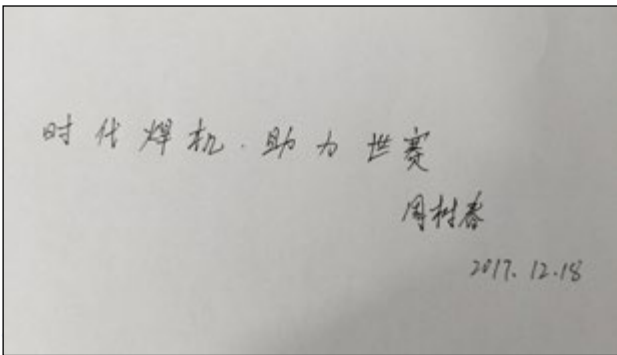 时代焊机·助力世赛
周树春
2017.12.18